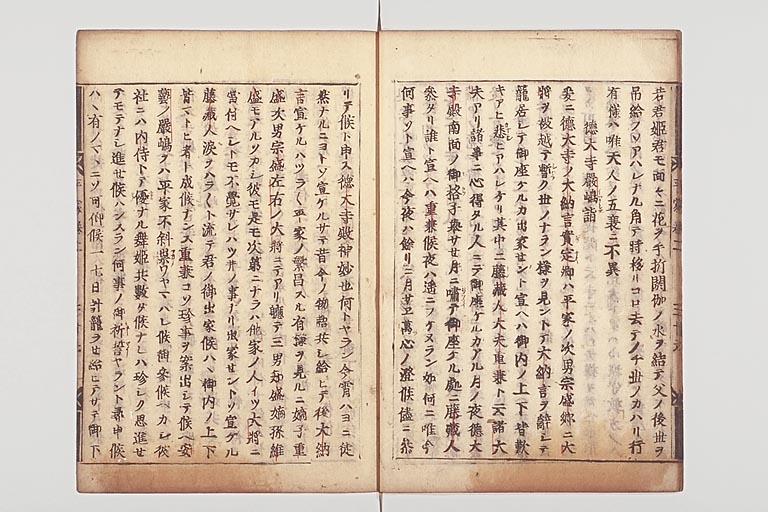 若君姫君モ面々ニ花ヲ手折閼伽ノ水ヲ結テ父ノ後世ヲ
吊給フソアハレナル角テ時移リコロ去テノチ世ノカハリ行
有様ハ唯天人ノ五衰ニ不異
徳大寺嚴嶋詣
爰ニ徳大寺ノ大納言實定卿ハ平家ノ次男宗盛卿ニ大
将ヲ被越テ暫ク世ノナラン様ヲ見ントテ大納言ヲ辞シテ
籠居シテ御座ケルカ出家セント宣ヘハ御内ノ上下皆歎
キアヒ悲ヒアハレケリ其中ニ藤蔵人大夫重兼ト云諸大
夫アリ諸事ニ心得タル人ニテ御座ケルカアル月ノ夜徳大
寺殿南面ノ御格子巻サセ月ニ嘯テ御座ケル處ニ藤蔵人
参タリ誰ト宣ヘハ重兼候夜ハ遥ニフケヌラン如何ニ唯今
何事ソト宣ヘハ今夜ハ餘リニ月サエ萬心ノ澄候儘ニ参
リテ候ト申ス徳大寺殿神妙也何トヤラン今宵ハヨニ徒
然ナルニヨトソ宣ケルサテ昔今ノ物語共シ給ヒテ後大納
言宣ケルハツラ〱平家ノ繁昌スル有様ヲ見ルニ嫡子重
盛次男宗盛左右ノ大将ニテアリ軈テ三男知盛嫡孫維
盛モアルソカシ彼モ是モ次第ニナラハ他家ノ人イツ大将ニ
當付ヘシトモ不覺サレハツ井ノ事ナリ出家セントソ宣ケル
藤蔵人涙ヲハラ〱ト流テ君ノ御出家候ハヽ御内ノ上下
皆マトヒ者ト成候ナンス重兼コソ珍事ヲ案出シテ候ヘ安
藝ノ嚴嶋ヲハ平家不斜崇ウヤマハレ候御参候ヘカシ彼
社ニハ内侍トテ優ナル舞姫共數タ候ナレハ珍シク思進セ
テモテナシ進セ候ハンスラン何事ノ御祈誓ヤラント尋申候
ハヽ有ノマヽニソ可仰候一七日計籠ラセ給ヒテサテ御下